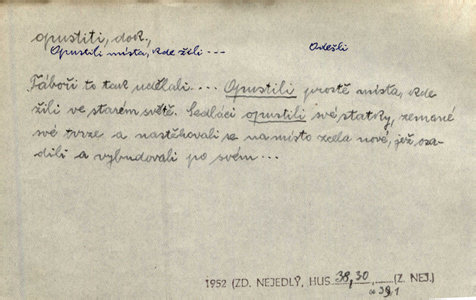 opustiti, dok.,
Opustili místa, kde žili --- Odešli
Táboři to tak udělali.... Opustili prostě místa, kde
žili ve starém světě. Sedláci opustili své statky, zemané
své tvrze a nastěhovali se na místo zcela nové, jež osa-
dili a vybudovali po svém...
1952 (ZD. NEJEDLÝ, HUS 38, 30, (Z. NEJ.)
a 39 1